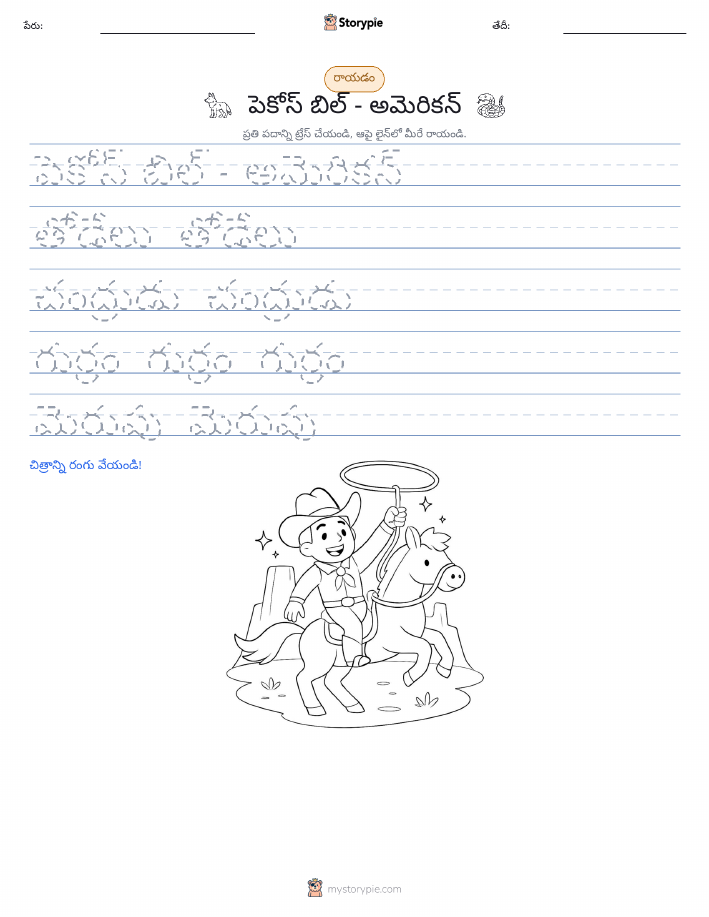 పేరు:
Storypie
తేదీ:
రాయడం
పెకోస్ బిల్ - అమెరికన్
ప్రతి పదాన్ని ట్రేస్ చేయండి, ఆపై లైన్‌లో మీరే రాయండి.
పెకోస్ బిల్ - అమెరికన్
తోడేలు తోడేలు
చంద్రుడు చంద్రుడు
గుర్రం గుర్రం గుర్రం
మెరుపు మెరుపు
చిత్రాన్ని రంగు వేయండి!
mystorypie.com